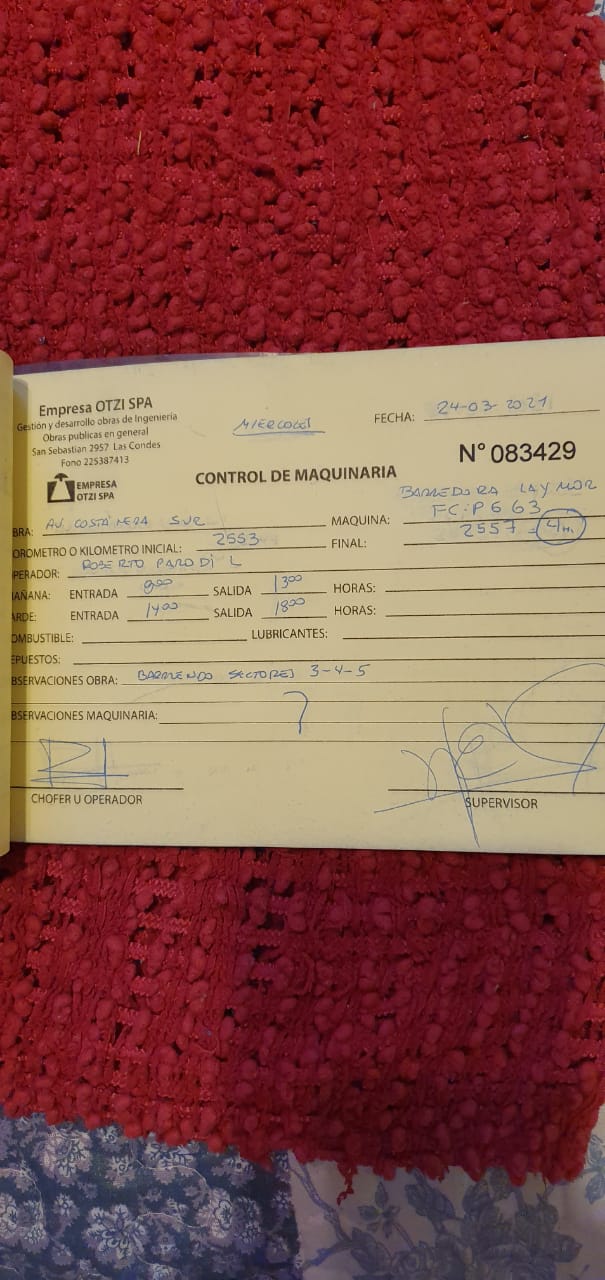 Empresa OTZI SPA
Gestión y desarrollo obras de Ingeniería
Obras publicas en general
San Sebastian 2957 Las Condes
Fono 225387413
EMPRESA
OTZI SPA
MIERCOLES
FECHA: 24-03-2021
N° 083429
CONTROL DE MAQUINARIA
BRA: AV. COSTANERA SUR
MAQUINA: BARREDORA LAYMOR
FC.P663
OROMETRO O KILOMETRO INICIAL: 2553
FINAL: 2557 = 4 H.
PERADOR: ROBERTO PARODI L
AÑANA: ENTRADA 8:00 SALIDA 13:00 HORAS:
ARDE: ENTRADA 14:00 SALIDA 18:00 HORAS:
OMBUSTIBLE: LUBRICANTES:
EPUESTOS:
BSERVACIONES OBRA: BARRIENDO SECTORES 3-4-5
BSERVACIONES MAQUINARIA:
CHOFER U OPERADOR
SUPERVISOR